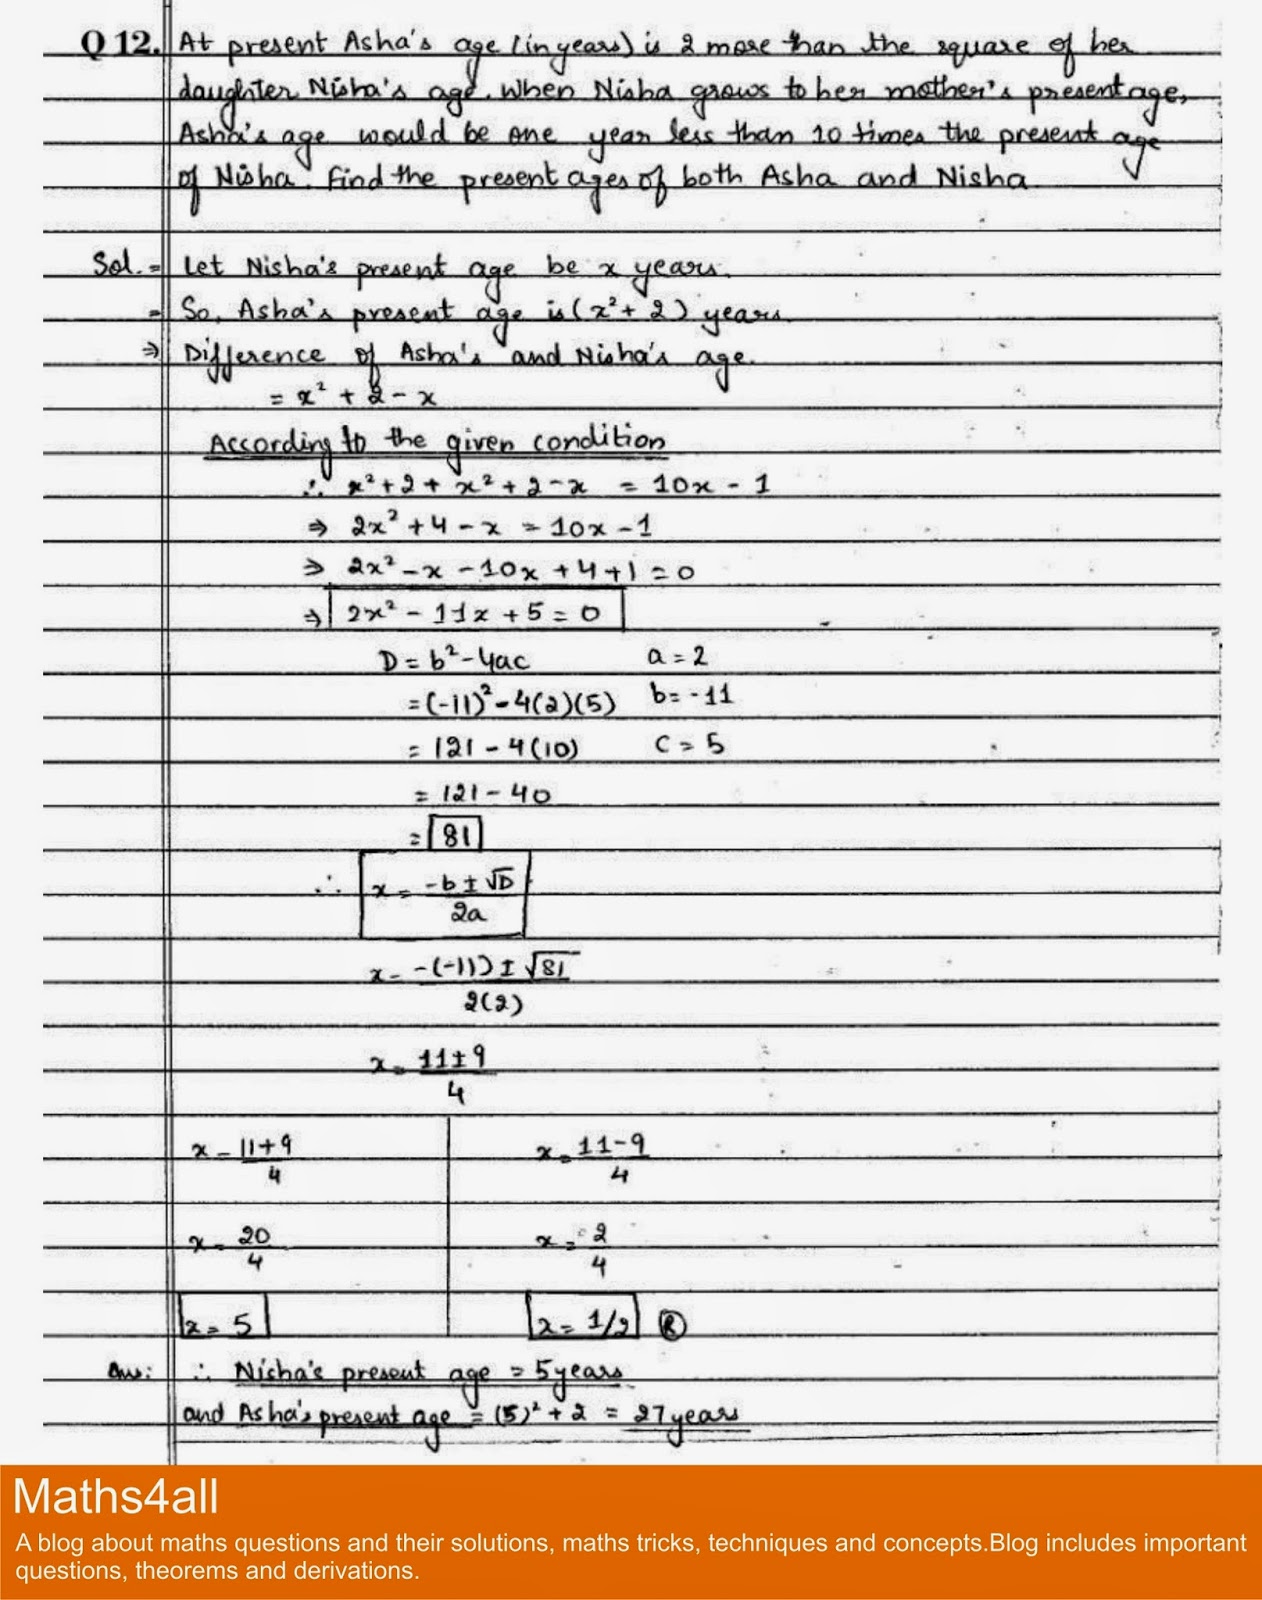 Q 12. At present Asha's age (in years) is 2 more than the square of her
daughter Nisha's age. When Nisha grows to her mother's present age,
Asha's age would be one year less than 10 times the present age
of Nisha. Find the present ages of both Asha and Nisha.
Sol. = Let Nisha's present age be x years.
= So, Asha's present age is (x² + 2) years.
⇒ Difference of Asha's and Nisha's age.
= x² + 2 - x
According to the given condition
∴ x² + 2 + x² + 2 - x = 10x - 1
⇒ 2x² + 4 - x = 10x - 1
⇒ 2x² - x - 10x + 4 + 1 = 0
⇒ 2x² - 11x + 5 = 0
D = b² - 4ac a = 2
= (-11)² - 4(2)(5) b = -11
= 121 - 4(10) c = 5
= 121 - 40
= 81
∴ x = -b ± √D / 2a
x = -(-11) ± √81 / 2(2)
x = 11 ± 9 / 4
x = 11 + 9 / 4 x = 11 - 9 / 4
x = 20 / 4 x = 2 / 4
x = 5 x = 1/2 Ⓡ
Ans: ∴ Nisha's present age = 5 years
and Asha's present age = (5)² + 2 = 27 years
Maths4all
A blog about maths questions and their solutions, maths tricks, techniques and concepts.Blog includes important
questions, theorems and derivations.